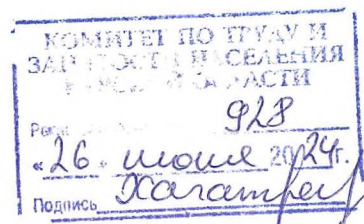 КОМИТЕТ ПО ТРУДУ И
ЗАНЯТОСТИ НАСЕЛЕНИЯ
ОБЛАСТИ
928
«26» июня 2024г.
Подпись